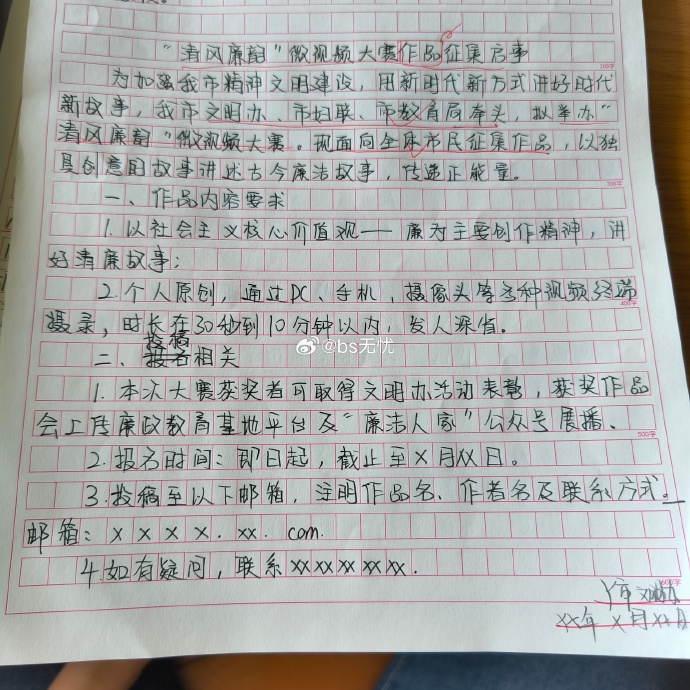 "清风廉韵"微视频大赛作品征集启事
100字
为加强我市精神文明建设，用新时代新方式讲好时代
新故事，我市文明办、市妇联、市教育局牵头，拟举办"
清风廉韵"微视频大赛。现面向全体市民征集作品，以独
具创意的故事讲述古今廉洁故事，传递正能量。
300字
一、作品内容要求
1.以社会主义核心价值观——廉为主要创作精神，讲
好清廉故事；
2.个人原创，通过PC、手机，摄像头等各种视频终端
400字
摄录，时长在30秒到10分钟以内，发人深省。
投稿
二、报名相关
@bs无忧
1.本次大赛获奖者可取得文明办活动表彰，获奖作品
会上传廉政教育基地平台及"廉洁人家"公众号展播、
500字
2.报名时间：即日起，截止至X月XX日。
3.投稿至以下邮箱，注明作品名、作者名及联系方式。
邮箱：xxxx.xx.com.
4.如有疑问，联系xxxxxx.
600字
市文明办
XX年X月XX日